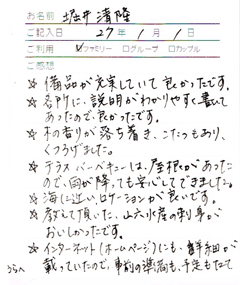 お名前 堀井清隆
ご記入日 27年1月1日
ご利用 ☑ファミリー □グループ □カップル
ご感想
☆ 備品が充実していて良かったです。
☆ 各所に、説明がわかりやすく書いて
あったので、良かったです。
☆ 木の香りが落ち着き、こたつもあり、
くつろげました。
☆ テラスバーベキューは、屋根があった
ので、雨が降っても安心してできました。
☆ 海に近いロケーションが良いです。
☆ 教えて頂いた、山六水産の刺身が
おいしかったです。
☆ インターネット(ホームページ)にも、詳細が
載っていたので、事前の準備も、予定もたて
うらへ